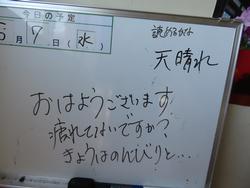 今日の予定
5月7日(水)
読めるかな
天晴れ
おはようございます
疲れてないですか?
きょうはのんびりと…